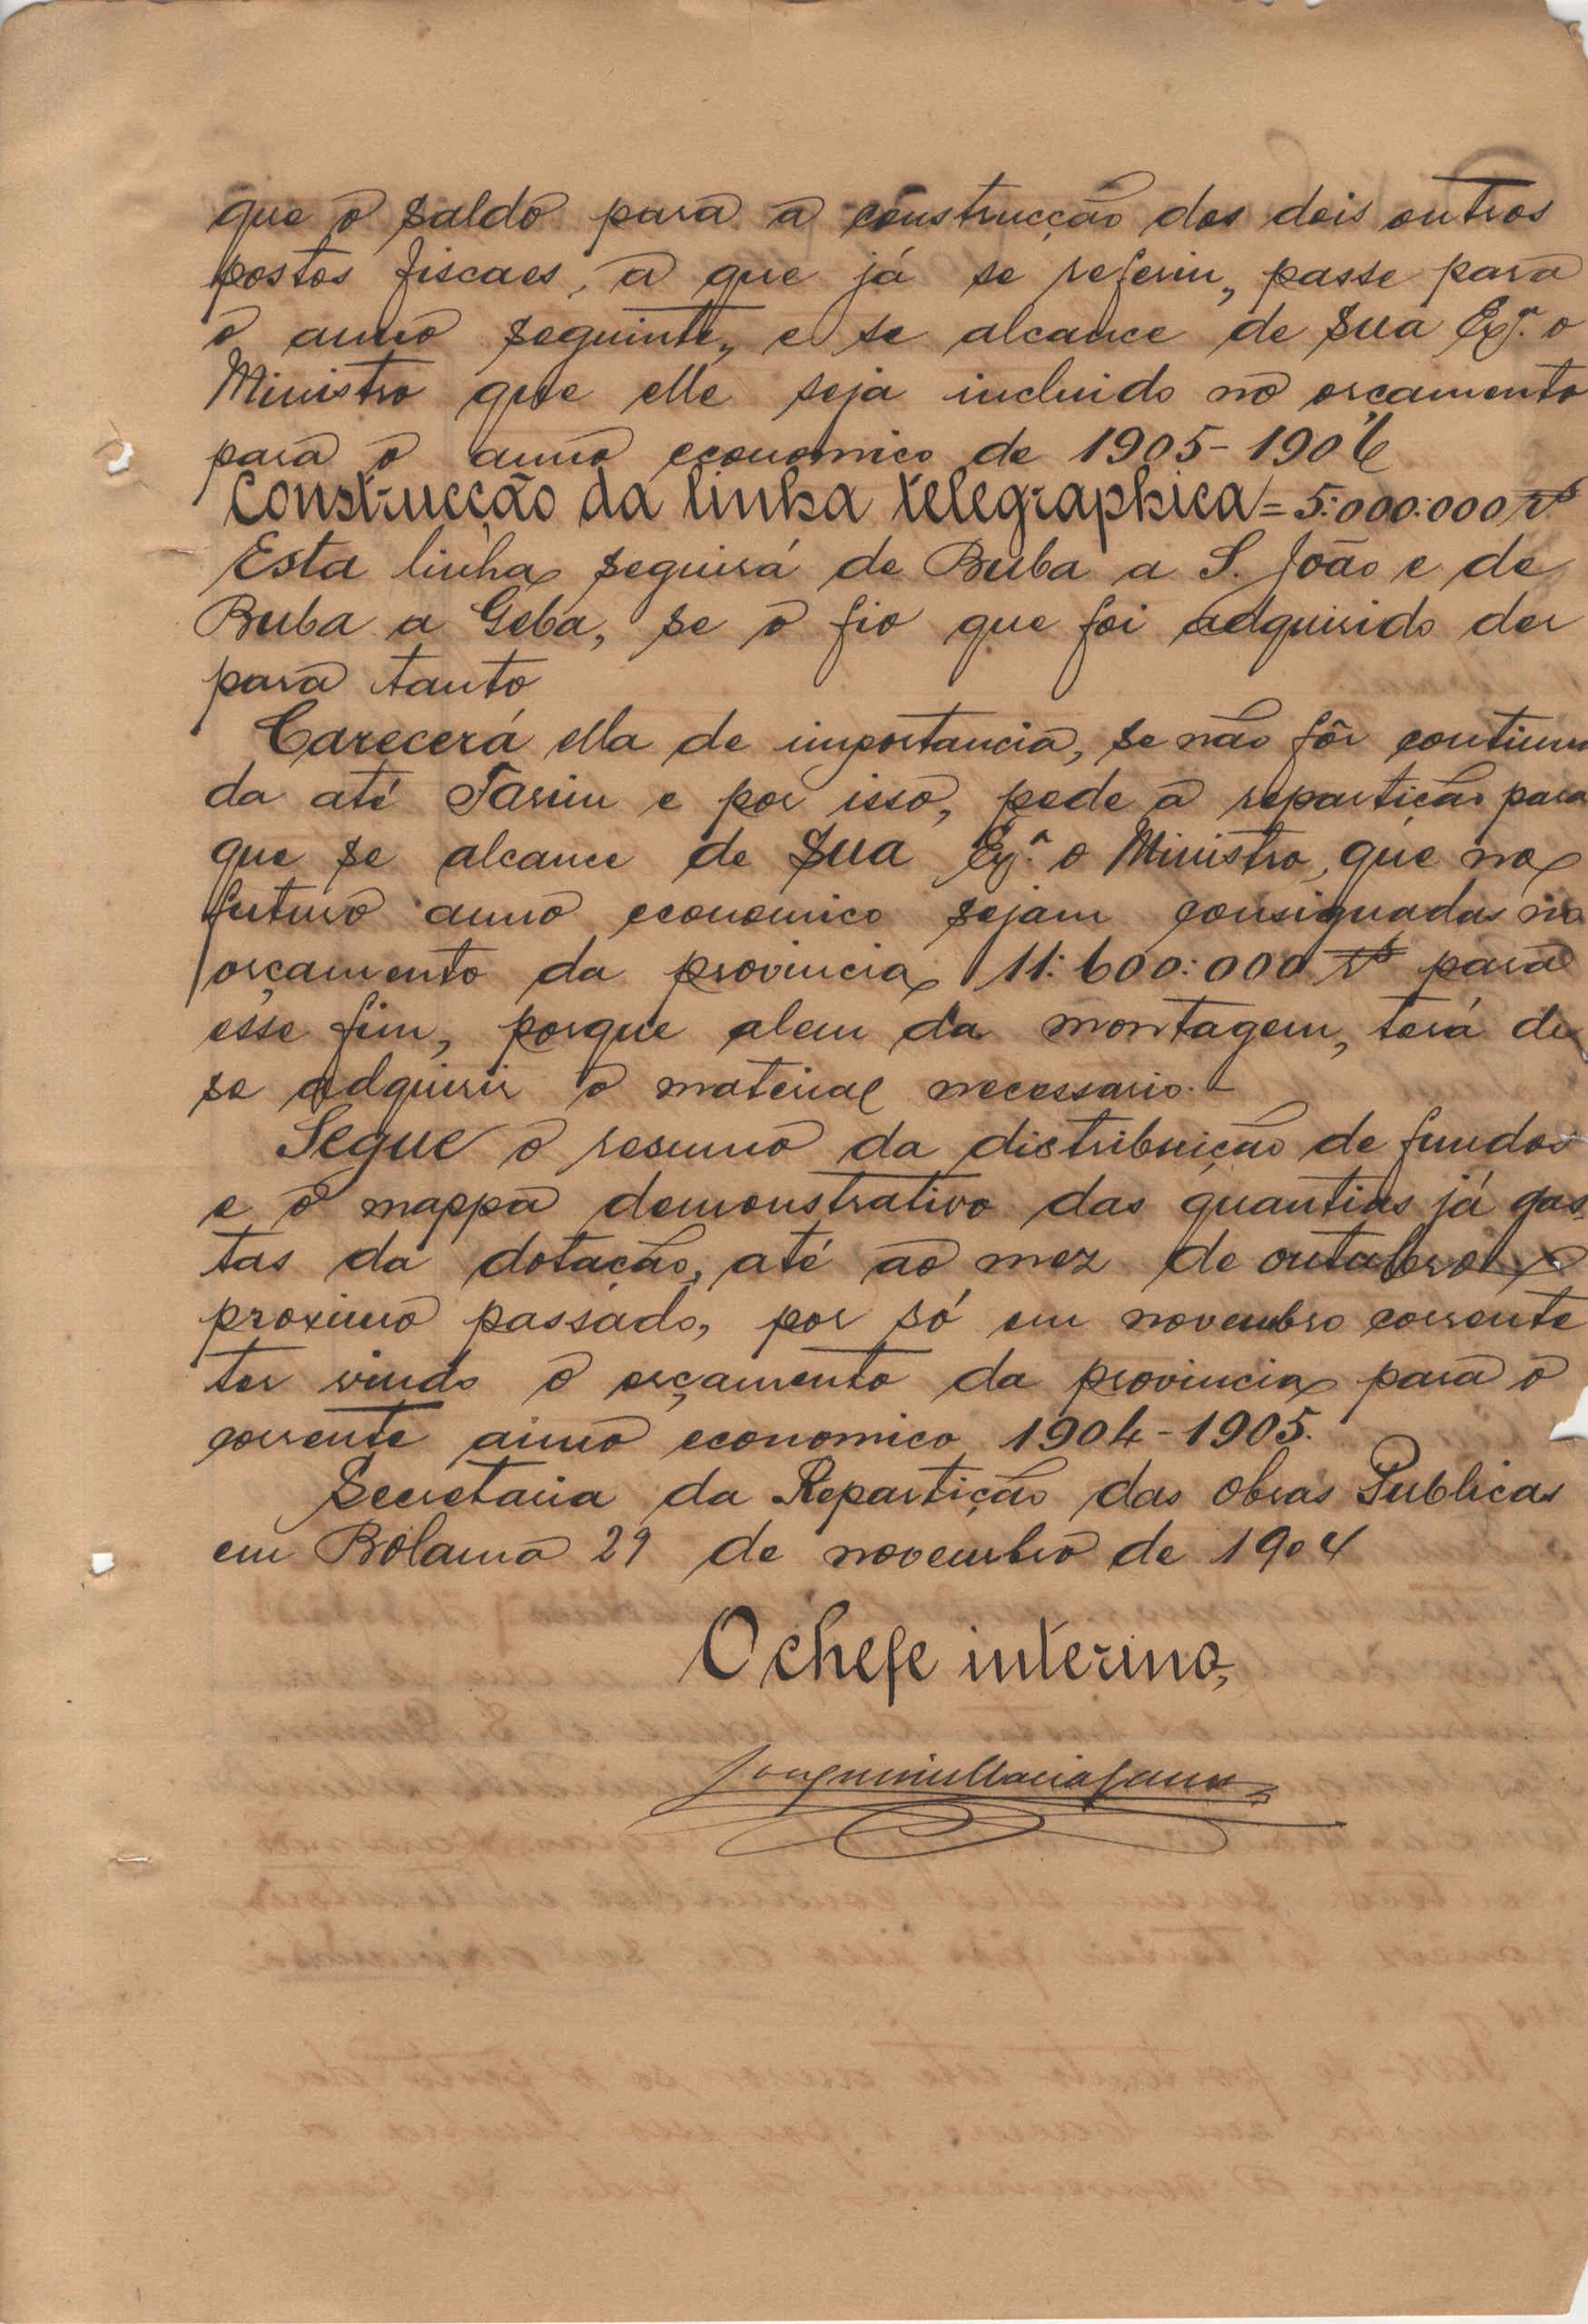 que o saldo para a construcção dos dois outros
postos fiscaes, a que já se referiu, passe para
o anno seguinte, e se alcance de Sua Exª. o
Ministro que elle seja incluido no orçamento
para o anno economico de 1905-1906
Construcção da linha telegraphica = 5:000:000 rs
Esta linha seguirá de Buba a S. João e de
Buba a Geba, se o fio que foi adquirido der
para tanto
Carecerá ella de importancia, se não fôr continua
da até Farim e por isso, pede a repartição para
que se alcance de Sua Exª. o Ministro, que no
futuro anno economico sejam consignadas no
orçamento da provincia 11:600:000 rs para
esse fim, porque alem da montagem, terá de
se adquirir o material necessario.-
Segue o resumo da distribuição de fundos
e o mappa demonstrativo das quantias já gas-
tas da dotação, até ao mez de outubro
proximo passado, por só em novembro corrente
ter vindo o orçamento da provincia para o
corrente anno economico 1904-1905.
Secretaria da Repartição das Obras Publicas
em Bolama 29 de novembro de 1904
O chefe interino,
Joaquim Maria